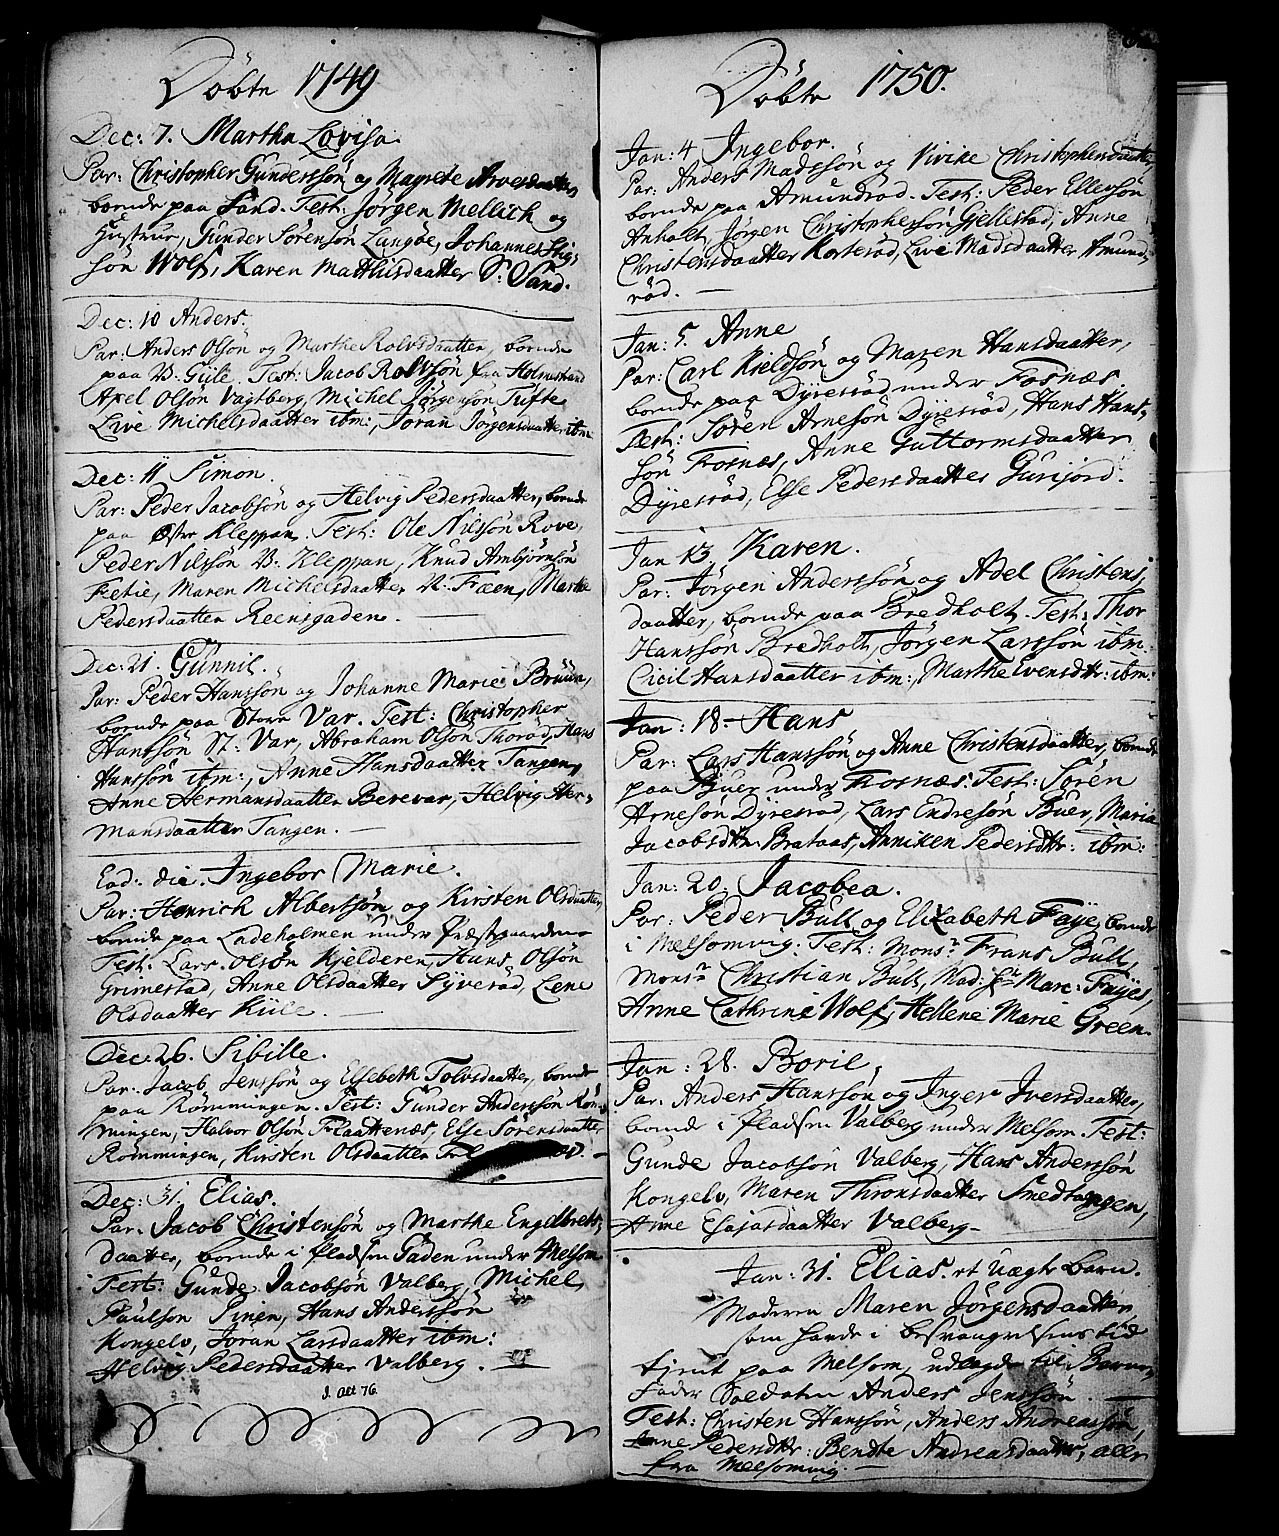 Döbte 1749
Dec: 7. Martha Lovisa.
Par: Christopher Gunderssön og Magrete Arvesdaatter,
boende paa Sand. Test: Jörgen Mellich og
Hustrue, Gunder Sörensön Langöe, Johannes Stig,
sön Wolf, Karen Matthisdaatter S: Sand.
Dec: 10 Anders.
Par: Anders Olsön og Marthe Rolvsdaatter, boende
paa V: Giile. Test: Jacob Rolvsön fra Holmestrand
Axel Olsön Vagtberg, Michel Jörgensön Tufte,
Live Michelsdaatter ibm:, Joran Jörgensdaatter ibm
Dec: 11 Simon.
Par: Peder Jacobsön og Helvig Pedersdaatter, boende
paa Östre Kleppan. Test: Ole Nilssön Rove,
Peder Nilssön V: Kleppan, Knud Ambjörnsön
Fetie, Maren Michelsdaatter V: Fæen, Marthe
Pedersdaatter Reensgaden.
Dec: 21. Gunnil.
Par: Peder Hanssön og Johanne Marie Bruun,
boende paa Store Var. Test: Christopher
Hanssön St: Var, Abraham Olsön Thoröd, Hans
Hanssön ibm:, Anne Hansdaatter Tangen,
Anne Hermansdaatter Berevar, Helvig Her,
mansdaatter Tangen.
Eod: die. Ingebor Marie.
Par: Henrich Albertsön og Kirsten Olsdaatter,
boende paa Ladeholmen under Præstegaarden
Test: Lars Olsön Kjelderen, Hans Olsön
Grimestad, Anne Olsdaatter Syveröd, Lene
Olsdaatter Kiile.
Dec: 26. Sibille.
Par: Jacob Jenssön og Elsebeth Tolvsdaatter, boende
paa Römmingen. Test: Gunder Anderssön Röm,
mingen, Halvor Olsön Flaattenæs, Else Sörensdaatter
Römmingen, Kirsten Olsdaatter
Dec: 31. Elias.
Par: Jacob Christensön og Marthe Engelbrets,
daatter, boende i Pladsen Gaden under Melsom
Test: Gunde Jacobsön Valberg, Michel
Paulsön Pinen, Hans Anderssön
Kongelv, Joran Larsdaatter ibm:
Helvig Pedersdaatter Valberg.
J. alt 76.
Döbte 1750.
Jan: 4 Ingebor.
Par: Anders Madssön og Vivike Christophersdaatter,
boende paa Amundröd. Test: Peder Ellefsön
Anholt, Jörgen Christopherssön Gjellestad, Anne
Christensdaatter Korteröd, Live Madsdaatter Amund,
röd.
Jan: 5. Anne
Par: Carl Kieldsön og Maren Hansdaatter,
boende paa Dyresröd under Fosnæs.
Test: Sören Arnesön Dyresröd, Hans Hans,
sön Fosnæs, Anne Guttormsdaatter
Dyresröd, Else Pedersdaatter Gurijord.
Jan 13 Karen.
Par: Jörgen Anderssön og Adel Christens,
daatter, boende paa Bredholt. Test: Thor
Hanssön Bredholt, Jörgen Larssön ibm:
Cicil Hansdaatter ibm:, Marthe Evensdtr: ibm:
Jan: 18. Hans
Par: Lars Hanssön og Anne Christensdaatter, boende
paa Buer under Fosnæs. Test: Sören
Arnesön Dyresröd, Lars Endresön Buer, Maria
Jacobsdtr: Brataas, Anniken Pedersdtr: ibm:
Jan: 20. Jacobea.
Par: Peder Bull og Elizabeth Faye, boende
i Melsomvig. Test: Monsr Frans Bull,
Monsr Christian Bull, Mad: Marc: Fayes,
Anne Cathrine Wolf, Hellene Marie Green.
Jan: 28. Boril,
Par: Anders Hanssön og Inger Iversdaatter,
boende i Pladsen Valberg under Melsom. Test:
Gunde Jacobsön Valberg, Hans Anderssön
Kongelv, Maren Thronsdaatter Smedtangen,
Anne Esajasdaatter Valberg.
Jan: 31. Elias. et Uægte barn.
Moderen Maren Jörgensdaatter
som havde i besvangrelsens tid
tjent paa Melsom, udlagde til Barne,
Fader Soldaten Anders Jenssön.
Test: Christen Hanssön, Anders Andreassön,
Anne Pedersdtr: Bendte Andreasdaatter, alle
fra Melsomvig.